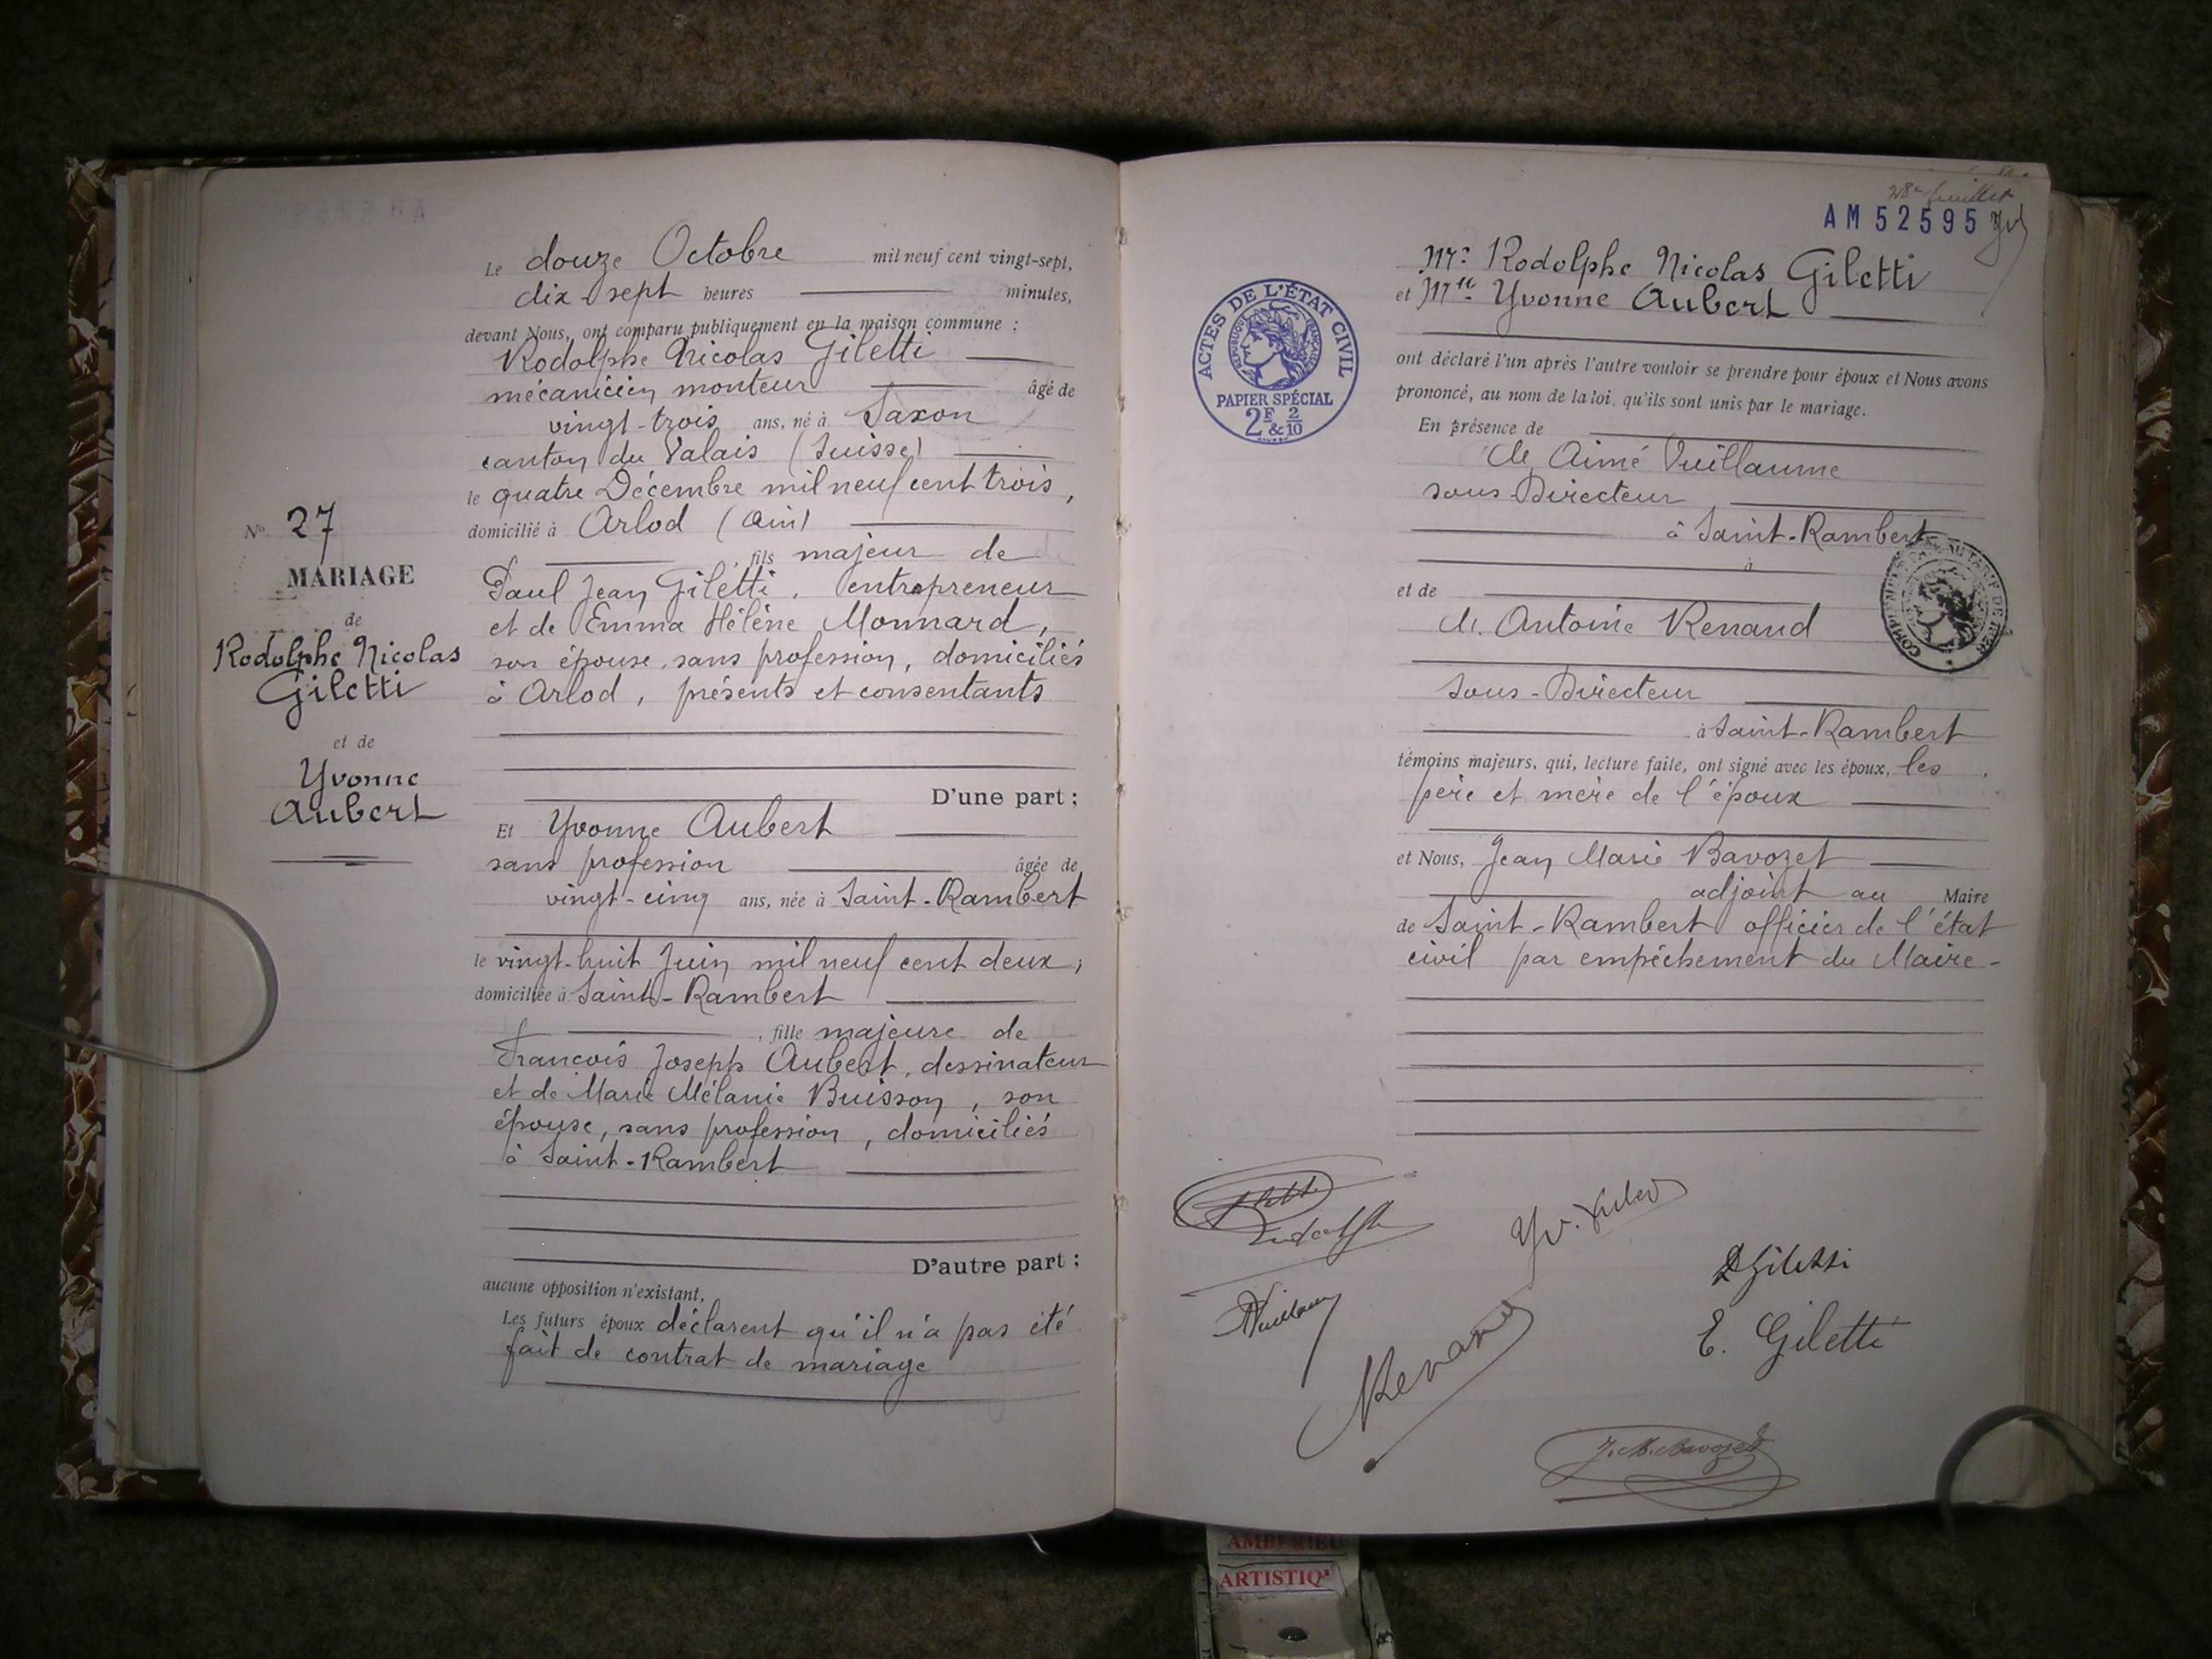 N° 27
MARIAGE
de
Rodolphe Nicolas
Giletti
et de
Yvonne
Aubert
Le douze Octobre mil neuf cent vingt-sept,
dix-sept heures minutes,
devant Nous, ont comparu publiquement en la maison commune :
Rodolphe Nicolas Giletti
mécanicien monteur âgé de
vingt-trois ans, né à Saxon
canton du Valais (Suisse)
le quatre Décembre mil neuf cent trois,
domicilié à Arlod (Ain)
, fils majeur de
Paul Jean Giletti, entrepreneur
et de Emma Hélène Monnard,
son épouse, sans profession, domiciliés
à Arlod, présents et consentants
D'une part ;
Et Yvonne Aubert
sans profession âgée de
vingt-cinq ans, née à Saint-Rambert
le vingt-huit Juin mil neuf cent deux,
domiciliée à Saint-Rambert
, fille majeure de
François Joseph Aubert, dessinateur
et de Marie Mélanie Buisson, son
épouse, sans profession, domiciliés
à Saint-Rambert
D'autre part ;
aucune opposition n'existant,
Les futurs époux déclarent qu'il n'a pas été
fait de contrat de mariage
28e feuillet
AM 52595
Mr. Rodolphe Nicolas Giletti
et Mlle Yvonne Aubert
ACTES DE L'ÉTAT CIVIL
RÉPUBLIQUE FRANÇAISE
PAPIER SPÉCIAL
2F & 2/10
ont déclaré l'un après l'autre vouloir se prendre pour époux et Nous avons
prononcé, au nom de la loi, qu'ils sont unis par le mariage.
En présence de
M. Aimé Vuillaume
sous-Directeur
à Saint-Rambert
à
et de
M. Antoine Renaud
Sous-Directeur
à Saint-Rambert
témoins majeurs, qui, lecture faite, ont signé avec les époux, les
père et mère de l'époux
et Nous, Jean Marie Bavozet
adjoint au Maire
de Saint-Rambert officier de l'état
civil par empêchement du Maire-
Giletti
E. Giletti
Renaud
J. M. Bavozet
AMBERIEU
ARTISTIQ